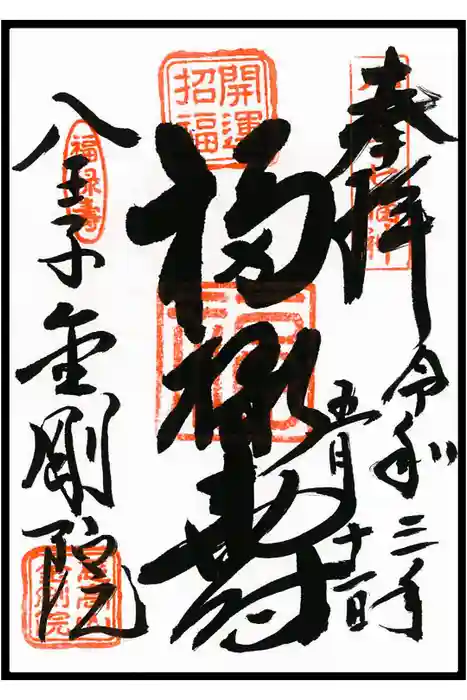 奉拝
令和三年
五月十一日
開運
招福
福禄寿
福禄寿
八王子金剛院
高尾山
金剛院